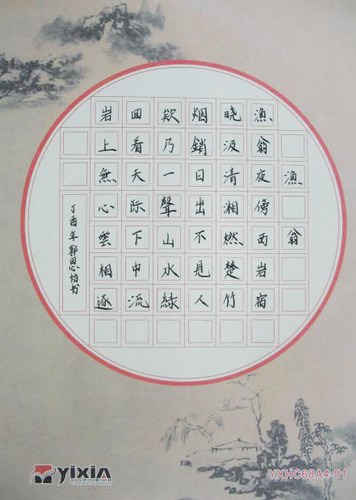 漁翁
漁翁夜傍西岩宿
曉汲清湘燃楚竹
烟銷日出不見人
欸乃一聲山水緑
回看天际下中流
岩上無心雲相逐
丁酉年郭思书
YIXIN
YXHC68A4-01